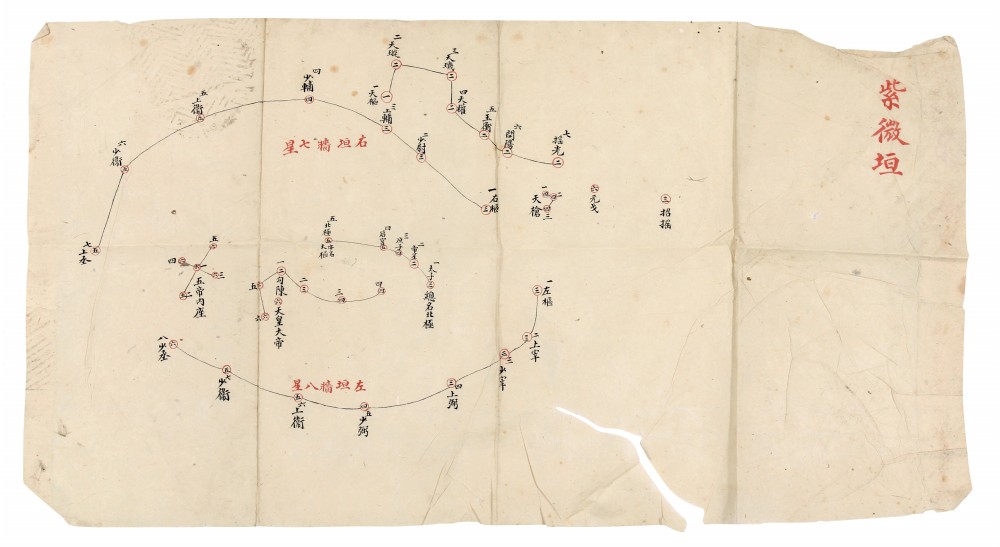 紫微垣
一天樞
二天璇
三天璣
四天權
五玉衡
六開陽
七搖光
天槍
一
二
三
四
元戈
招搖
右垣牆七星
一右樞
二少尉
三上輔
四少輔
五上衛
六少衛
七上丞
一太子
總名北極
二帝星
三庶子
四后宮
五北極
天樞
勾陳
一
二
三
四
五
六
天皇大帝
五帝內座
一
二
三
四
五
左垣牆八星
一左樞
二上宰
三少宰
四上弼
五少弼
六上衛
七少衛
八少丞